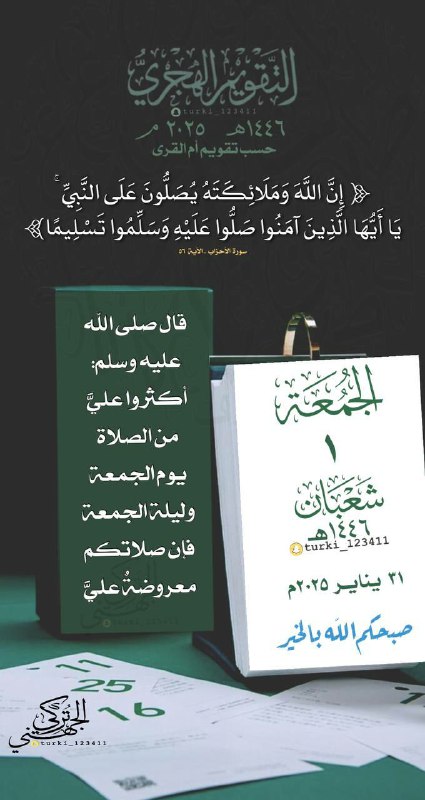 التقويم الهجري
turki_123411
١٤٤٦هـ ٢٠٢٥ م
حسب تقويم أم القرى
﴿ إِنَّ اللَّهَ وَمَلَائِكَتَهُ يُصَلُّونَ عَلَى النَّبِيِّ ۚ
يَا أَيُّهَا الَّذِينَ آمَنُوا صَلُّوا عَلَيْهِ وَسَلِّمُوا تَسْلِيمًا ﴾
سورة الأحزاب - الآية ٥٦
قال صلى الله
عليه وسلم:
أكثروا عليَّ
من الصلاة
يوم الجمعة
وليلة الجمعة
فإن صلاتكم
معروضةٌ عليَّ
turki_123411
الجُمعَة
١
شَعبَان
١٤٤٦هـ
turki_123411
٣١ يناير ٢٠٢٥م
صبحكم الله بالخير
11
25
16
تركي
الجهني
turki_123411